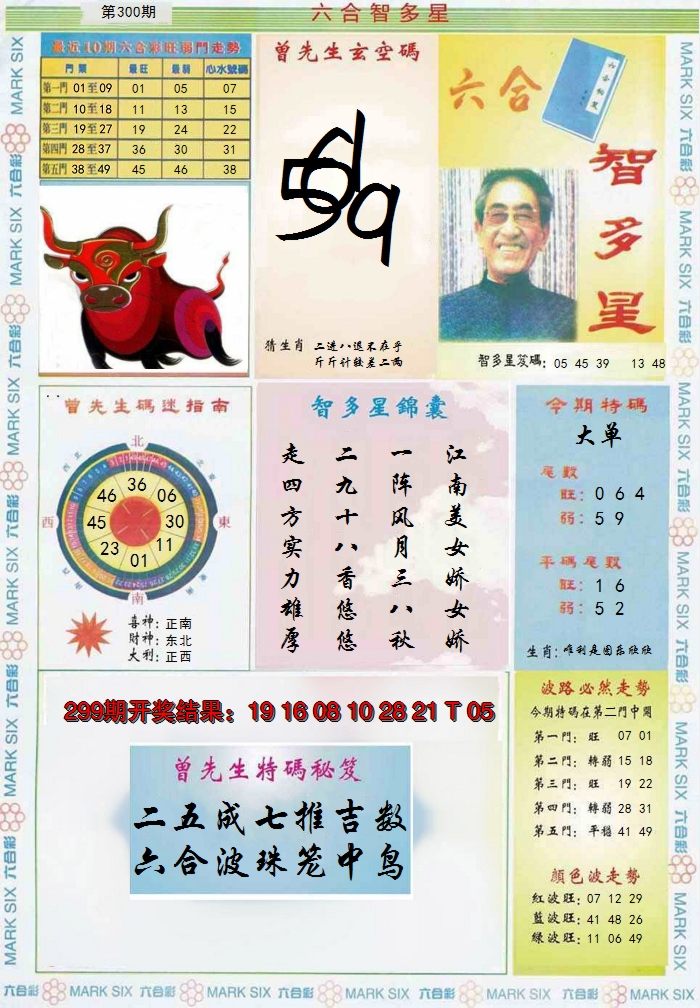 第300期
六合智多星
最近10期六合彩旺弱門走勢
門類 最旺 最弱 心水號碼
第一門 01至09 01 05 07
第二門 10至18 11 13 15
第三門 19至27 19 24 22
第四門 28至37 36 30 31
第五門 38至49 45 46 38
曾先生玄空碼
猜生肖 二进八退不在乎
斤斤计较差二两
六合
智多星
智多星笈碼: 05 45 39 13 48
曾先生碼迷指南
北
西 東
南
36
06
30
11
01
23
45
46
喜神: 正南
财神: 东北
大利: 正西
智多星錦囊
江南美女娇女娇
一阵风月三八秋
二九十八香悠悠
走四方实力雄厚
今期特碼
大单
尾數
旺: 0 6 4
弱: 5 9
平碼尾數
旺: 1 6
弱: 5 2
生肖: 唯利是图乐欣欣
299期开奖结果: 19 16 08 10 28 21 T 05
曾先生特碼秘笈
二五成七推吉数
六合波珠笼中鸟
波路必然走勢
今期特碼在第二門中開
第一門: 旺 07 01
第二門: 轉弱 15 18
第三門: 旺 19 22
第四門: 轉弱 28 31
第五門: 平穩 41 49
顏色波走勢
紅波旺: 07 12 29
藍波旺: 41 48 26
綠波旺: 11 06 49
六合彩 MARK SIX 六合彩 MARK SIX 六合彩 MARK SIX 六合彩 MARK SIX 六合彩 MARK SIX